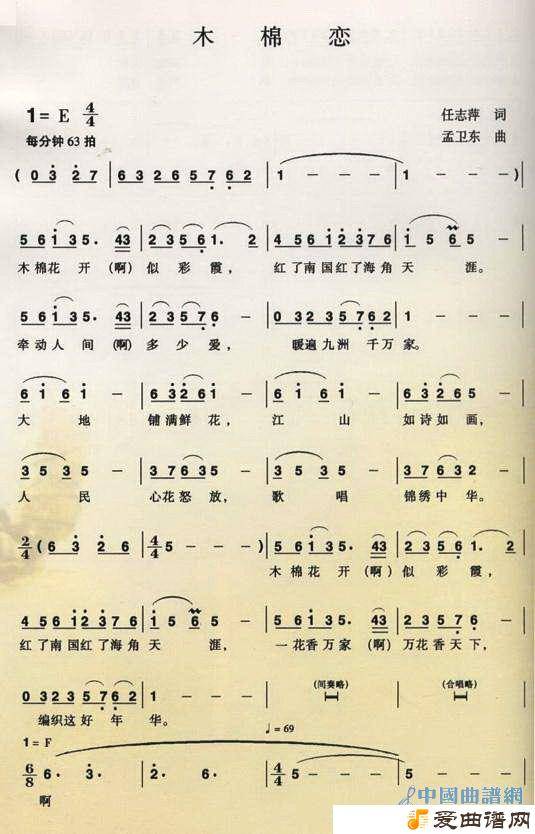 木 棉 恋
1= E 4/4
任志萍 词
每分钟 63 拍
孟卫东 曲
( 0 3 2 7 | 6 3 2 6 5 7 6 2 | 1 - - - | 1 - - - )
5 6 1 3 5. 43 | 2 3 5 6 1. 2 | 4 5 6 1 2 3 7 6 | 1 5 6 5 - |
木棉花 开 (啊) 似 彩 霞, 红了南国红了海角 天 涯。
5 6 1 3 5. 43 | 2 3 5 7 6 - | 0 3 2 3 5 7 6 2 | 1 - - - |
牵动人 间 (啊) 多 少 爱, 暖遍九洲 千万家。
6 1 6 1 - | 6 1 2 1 6 - | 6 1 6 1 - | 6 1 2 3 2 - |
大 地 铺满鲜 花, 江 山 如诗如 画,
3 5 3 5 - | 3 5 7 6 5 - | 3 5 3 5 - | 3 6 7 6 3 2 - |
人 民 心花怒 放, 歌 唱 锦绣中 华。
2/4 ( 6 3 2 6 | 4/4 5 - - - ) | 5 6 1 3 5. 43 | 2 3 5 6 1. 2 |
木棉花 开 (啊) 似 彩 霞,
4 5 6 1 2 3 7 6 | 1 5 6 5 - | 5 6 1 3 5. 43 | 2 3 5 7 6 - |
红了南国红了海角 天 涯, 一花香万家 (啊) 万花香天下,
0 3 2 3 5 7 6 2 | 1 - - - | (间奏略) | (合唱略) |
编织这好 年 华。
♩=69
1=F
6/8 6. 3. | 2. 6. | 4/4 5 - - - | 5 - - -
啊
中國曲譜網
爱曲谱网